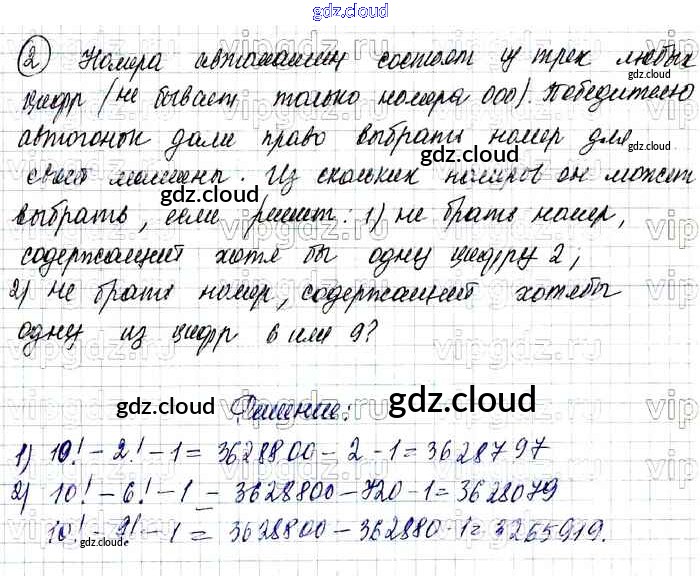 gdz.cloud
② Номера автомашин состоят из трех любых
цифр (не бывает только номера 000). Победителю
автогонок дали право выбрать номер для
своей машины. Из скольких номеров он может
выбрать, если решит: 1) не брать номер,
содержащий хотя бы одну цифру 2;
2) не брать номер, содержащий хотябы
одну из цифр 6 или 9?
Решение:
1) 10! - 2! - 1 = 3628800 - 2 - 1 = 3628797
2) 10! - 6! - 1 = 3628800 - 720 - 1 = 3628079
10! - 9! - 1 = 3628800 - 362880 - 1 = 3265919.